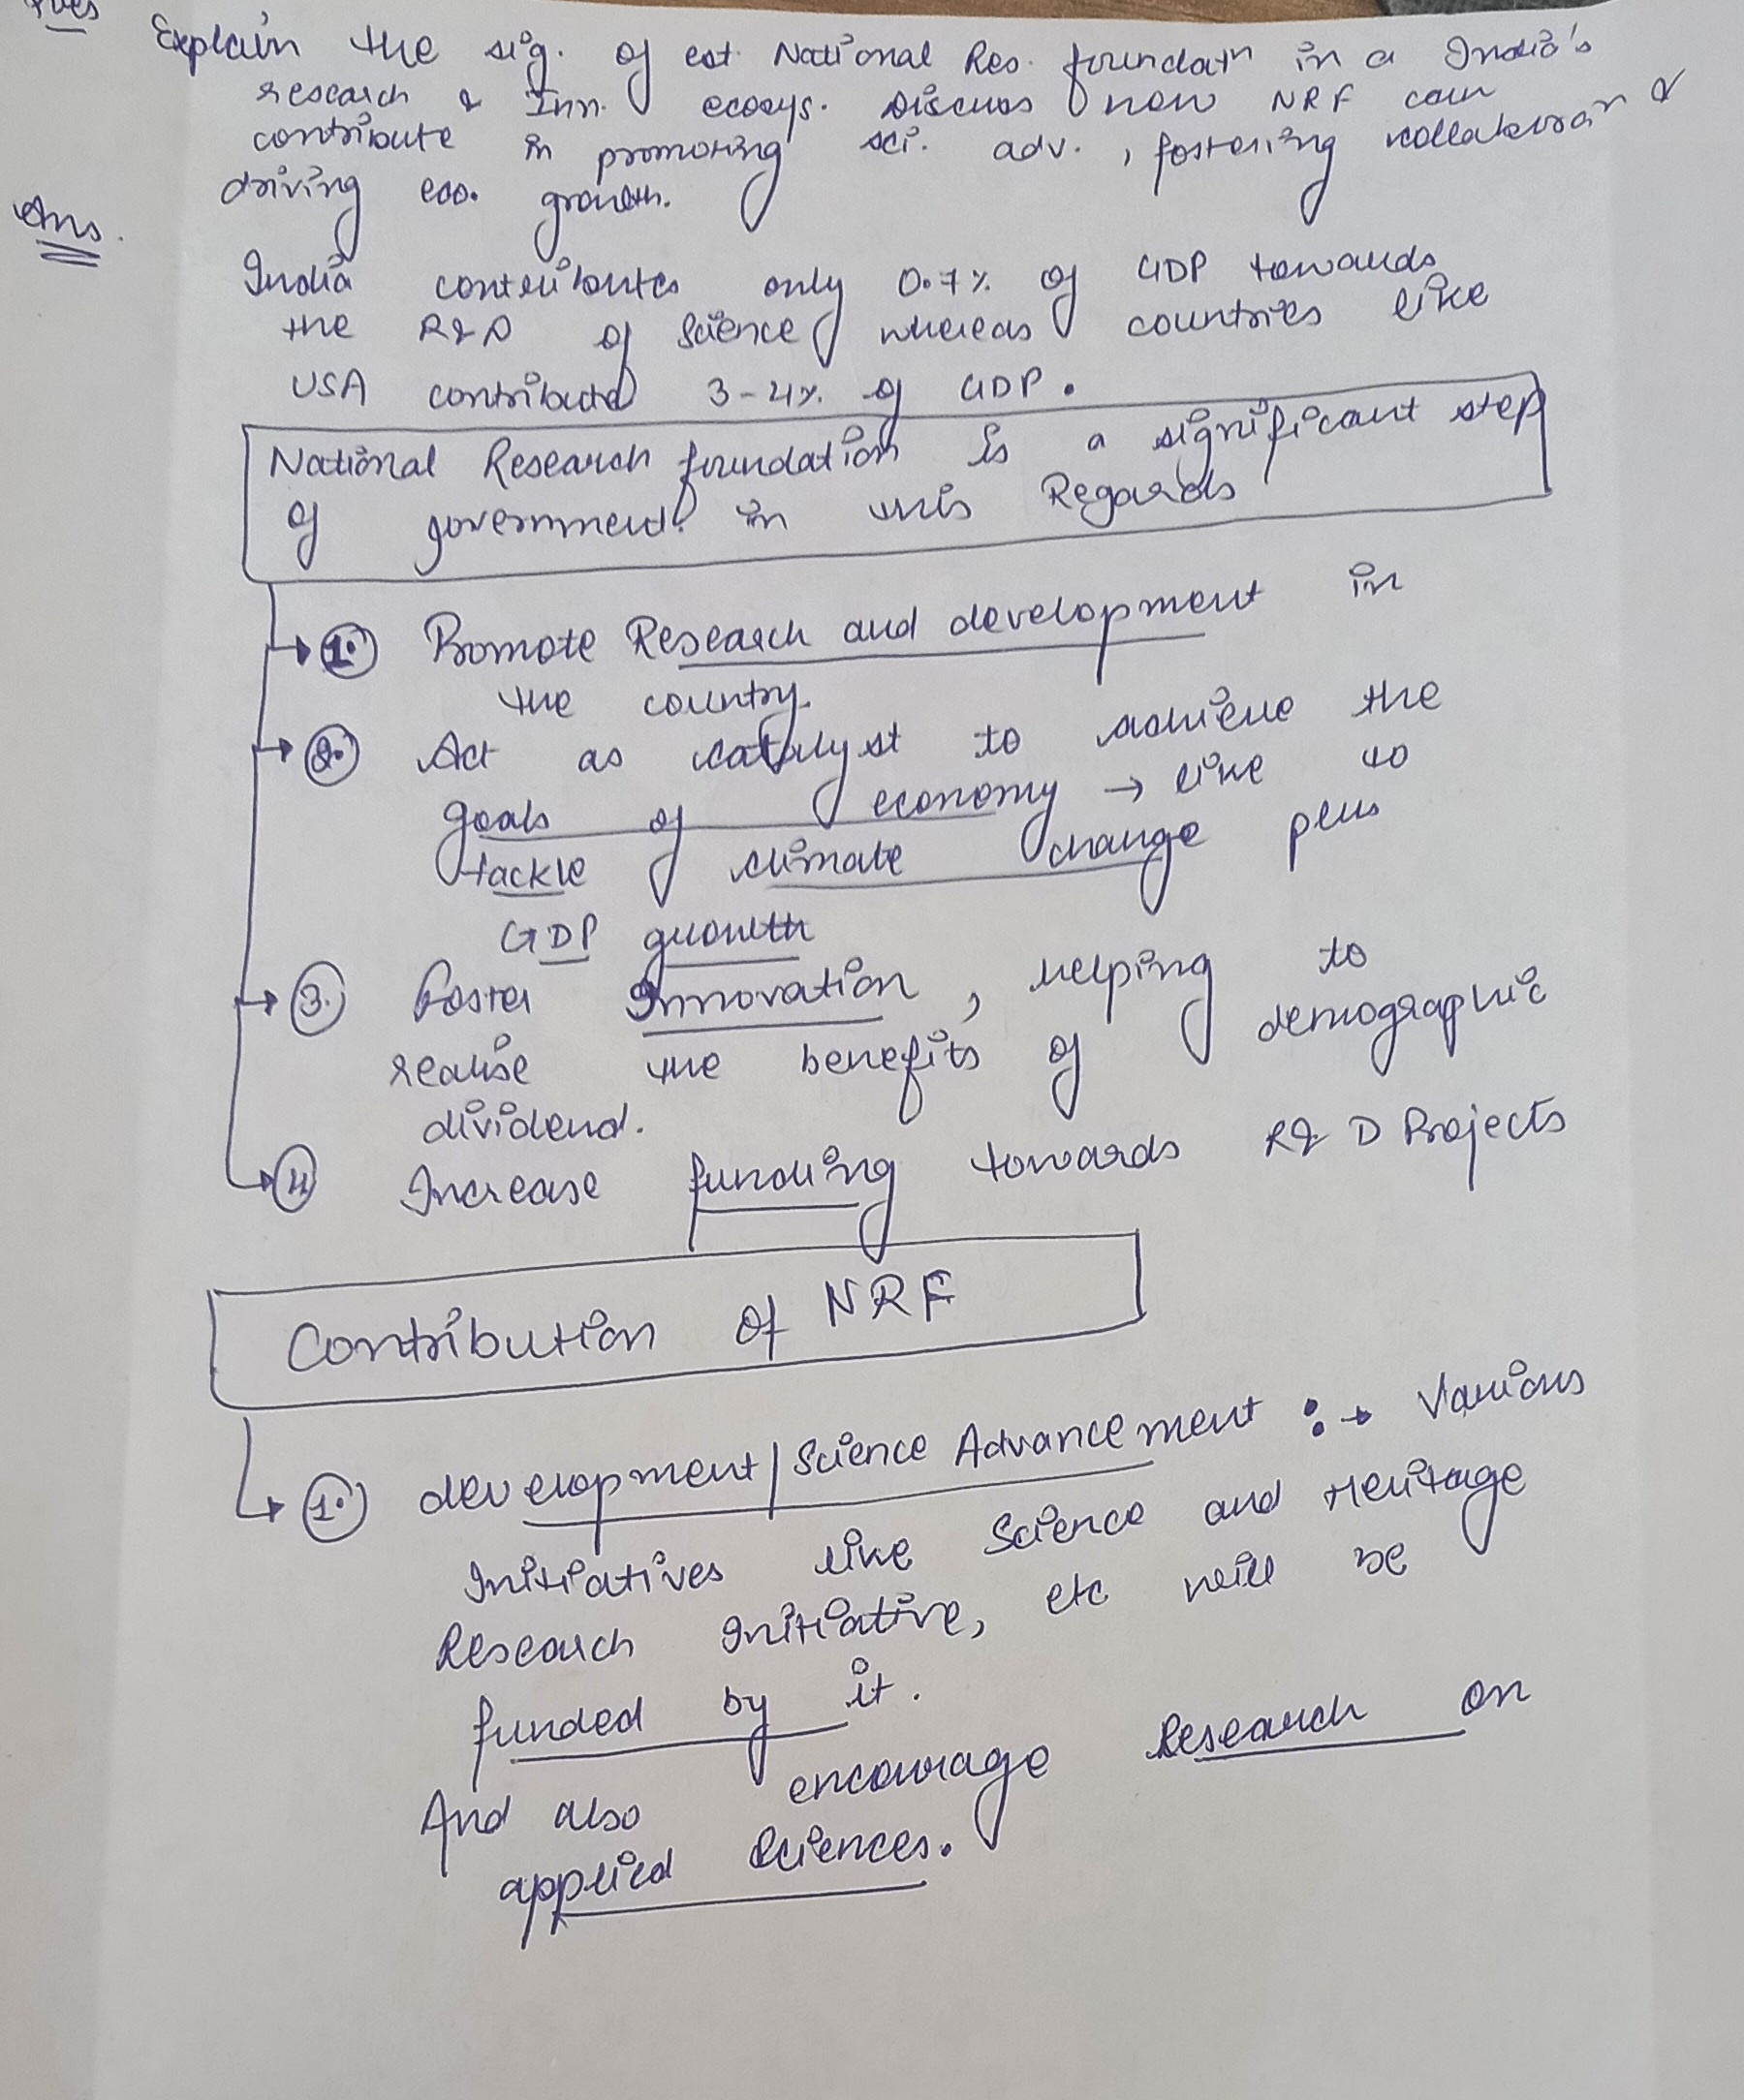 Ques Explain the sig. of est. National Res. foundatn in a India's
research & Inn. ecosys. Discuss how NRF can
contribute in promoting sci. adv., fostering collaboran &
driving eco. growth.
Ans.
India contributes only 0.7% of GDP towards
the R&D of Science whereas countries like
USA contributed 3-4% of GDP.
National Research foundation is a significant step
of government in this Regards
1. Promote Research and development in
the country.
2. Act as catalyst to achieve the
goals of economy → like to
tackle climate change plus
GDP growth
3. Foster Innovation, helping to
realise the benefits of demographic
dividend.
4 Increase funding towards R & D Projects
Contribution of NRF
1. development/Science Advancement :→ Various
Initiatives like Science and Heritage
Research Initiative, etc will be
funded by it.
And also encourage Research on
applied Sciences.